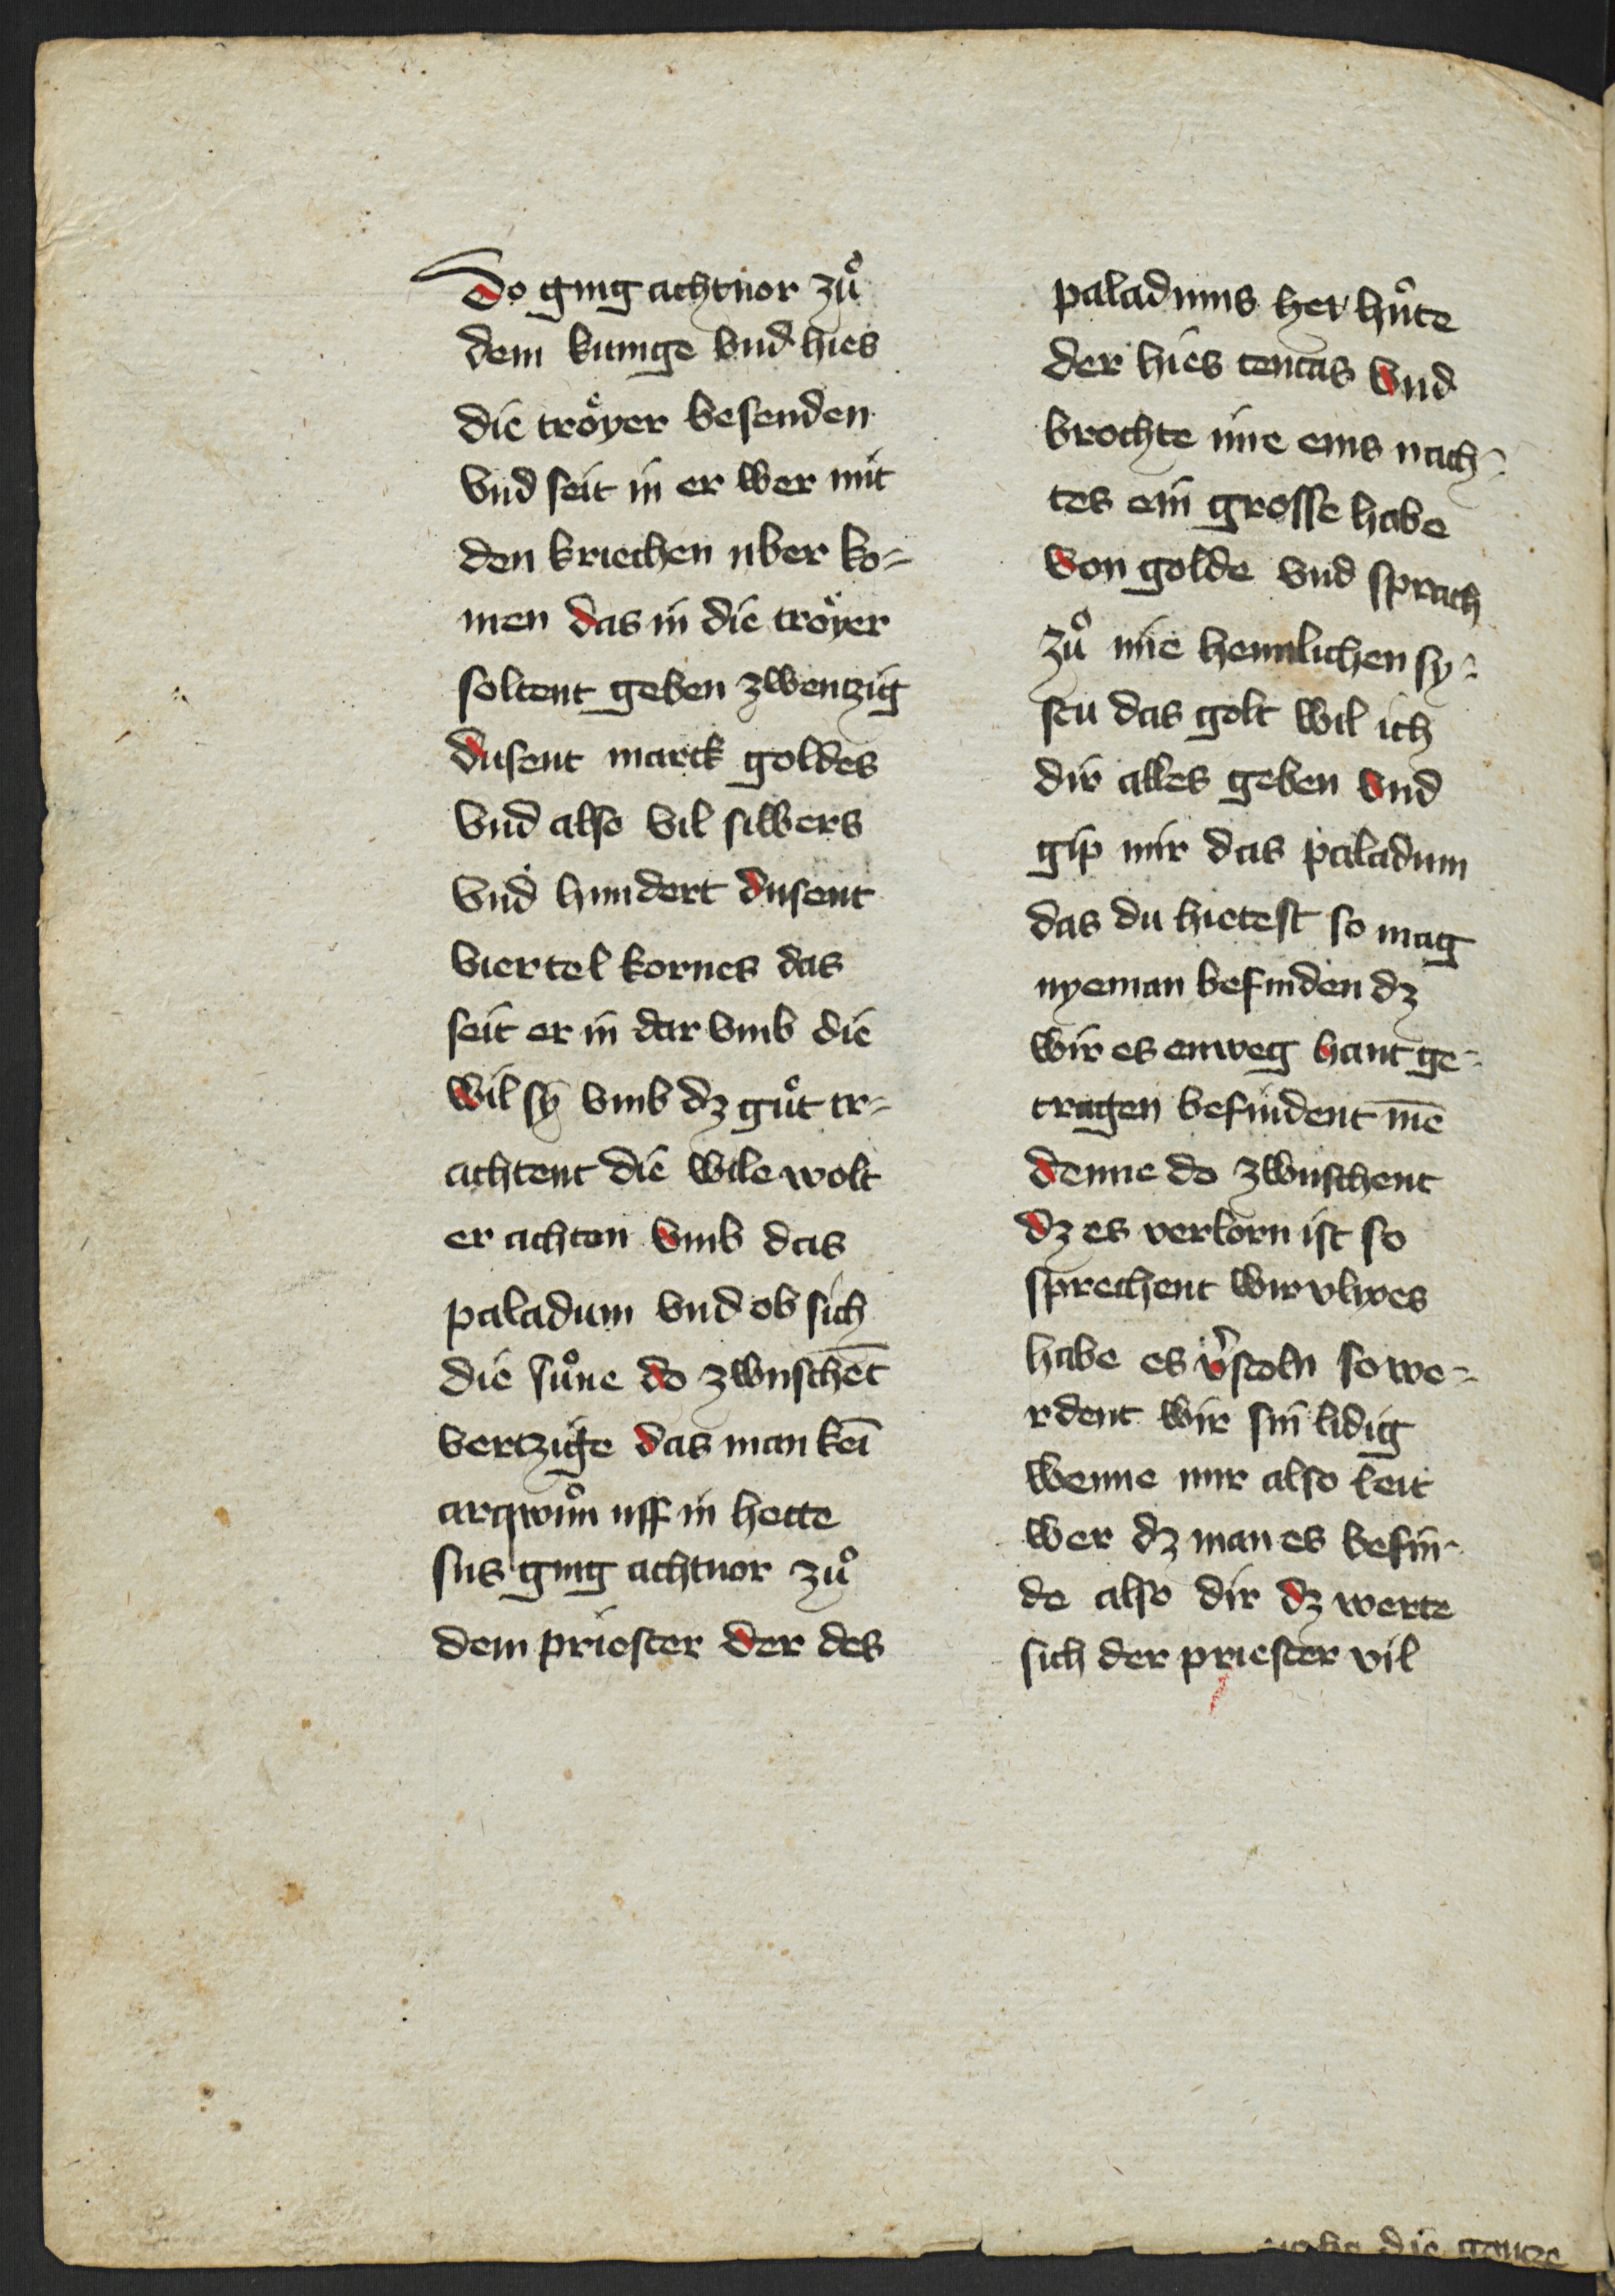 Do ging achtnor zuͦ
dem kunige vnd hies
die troͤyer besenden
vnd seit in er wer mit
den kriechen uber ko-
men das in die troͤyer
soltent geben zwentzig
dusent marck goldes
vnd also vil silbers
vnd hundert dusent
viertel kornes das
seit er in dar vmb die
wil sÿ vmb dz guͦt tr-
achtent die wile wolt
er achten vmb das
paladum vnd ob sich
die suͦne do zwuschēt
vertzige das man kei
arqwuͦn uff in hette
sus ging achtnor zuͦ
dem priester der des
paladums her huͦte
der hies tentas vnd
brochte ime eins nach-
tes ein grosse habe
von golde vnd sprach
zuͦ ime heimlichen sy-
stu das golt wil ich
dir alles geben vnd
gip mir das paladum
das du hietest so mag
nyeman befinden dz
wir es enweg hant ge-
tragen befindent me
denne do zwuschent
dz es verlorn ist so
sprechent wir vlixes
habe es v̉stoln so we-
rdent wir sin lidig
wenne mir also leit
wer dz man es befin-
de also dir dz werte
sich der priester vil
die gantze